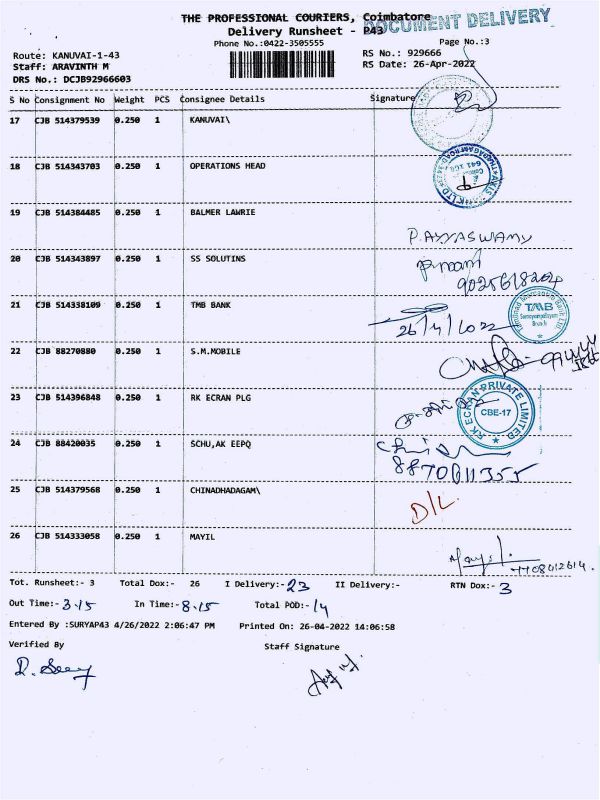 THE PROFESSIONAL COURIERS, Coimbatore
DOCUMENT DELIVERY
Delivery Runsheet - P43
Phone No.:0422-3505555
Page No.:3
Route: KANUVAI-1-43
RS No.: 929666
Staff: ARAVINTH M
RS Date: 26-Apr-2022
DRS No.: DCJB92966603
S No Consignment No Weight PCS Consignee Details Signature
17 CJB 514379539 0.250 1 KANUVAI\
18 CJB 514343703 0.250 1 OPERATIONS HEAD
AXIS BANK LTD
641 108
19 CJB 514384485 0.250 1 BALMER LAWRIE
P. AYYASWAMY
20 CJB 514343897 0.250 1 SS SOLUTINS
9025618204
21 CJB 514338109 0.250 1 TMB BANK
26/4/2022
TMB
22 CJB 88270880 0.250 1 S.M.MOBILE
23 CJB 514396848 0.250 1 RK ECRAN PLG
RK ECRAN PRIVATE LIMITED
CBE-17
24 CJB 88420035 0.250 1 SCHU,AK EEPQ
8870611355
25 CJB 514379568 0.250 1 CHINADHADAGAM\
D/L
26 CJB 514333058 0.250 1 MAYIL
7708012614.
Tot. Runsheet:- 3 Total Dox:- 26 I Delivery:- 23 II Delivery:- RTN Dox:- 3
Out Time:- 3.15 In Time:- 8.15 Total POD:- 14
Entered By :SURYAP43 4/26/2022 2:06:47 PM Printed On: 26-04-2022 14:06:58
Verified By Staff Signature